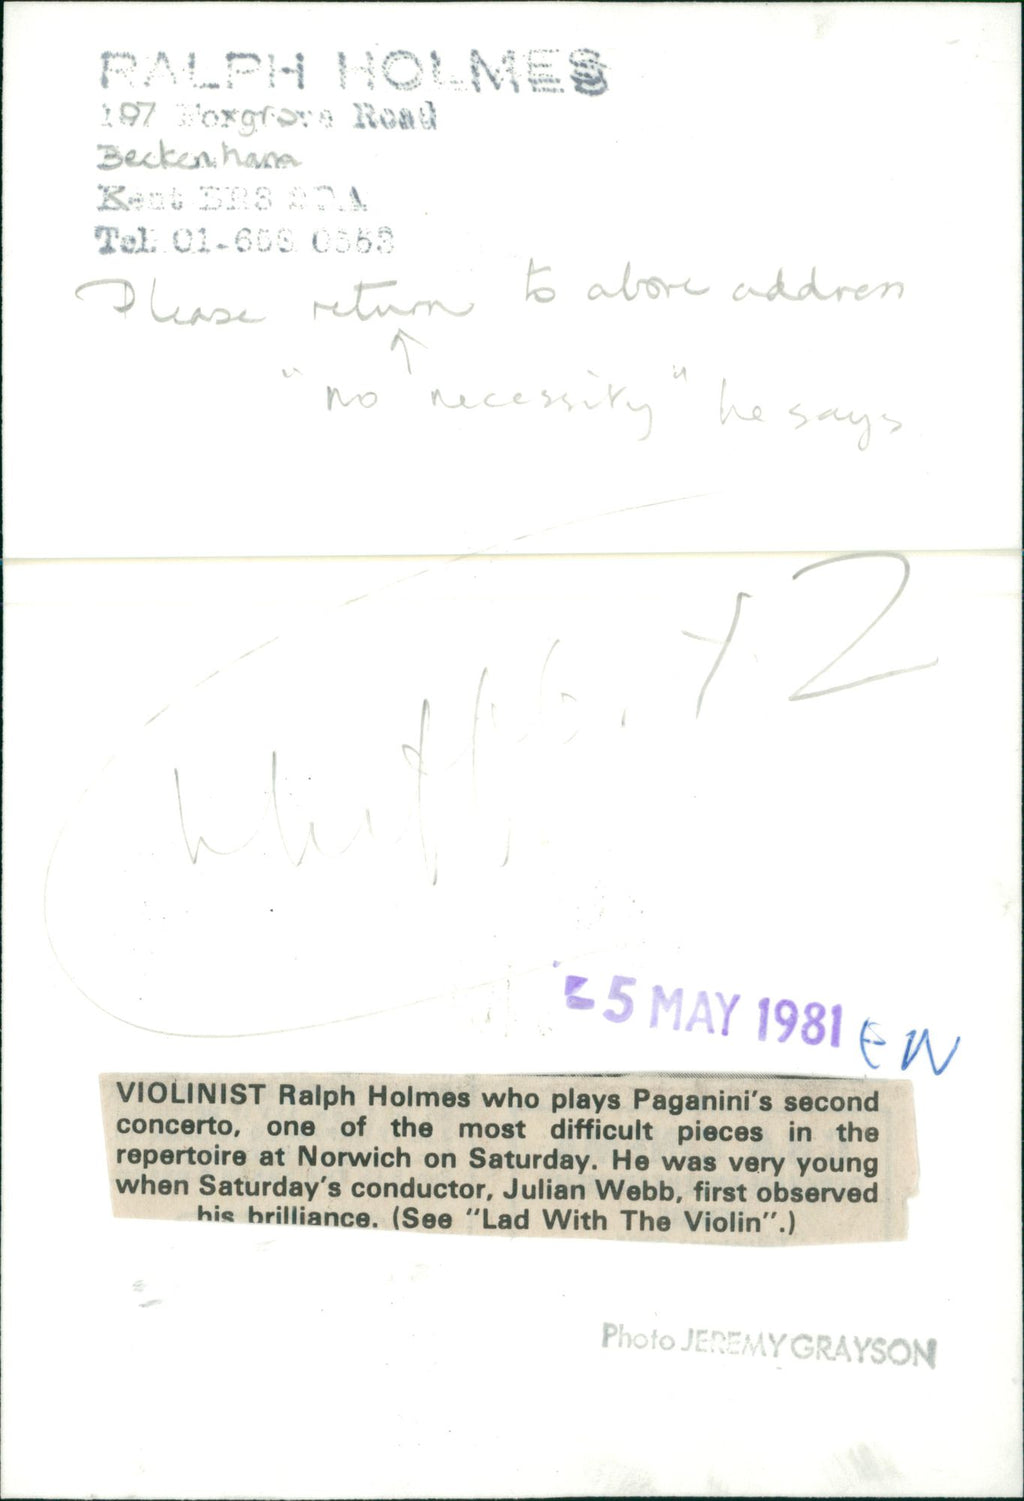 RALPH HOLMES
197 Foxgrove Road
Beckenham
Kent
Tel. 01-
Please return to above address
↑
"no necessity" he says
5 MAY 1981
EW
VIOLINIST Ralph Holmes who plays Paganini's second
concerto, one of the most difficult pieces in the
repertoire at Norwich on Saturday. He was very young
when Saturday's conductor, Julian Webb, first observed
his brilliance. (See "Lad With The Violin".)
Photo JEREMY GRAYSON